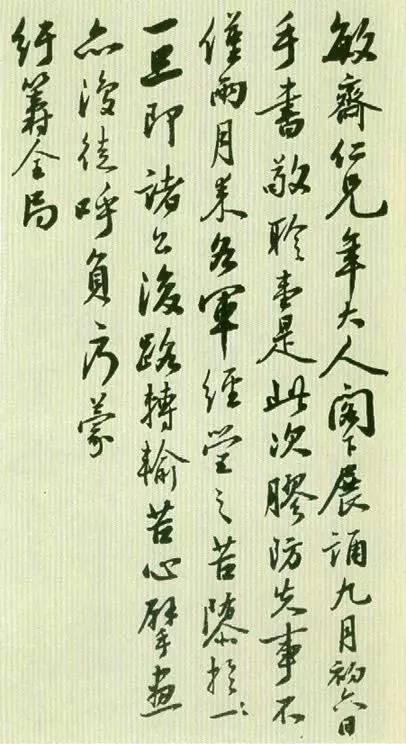 敏齋仁兄年大人閣下展誦九月初六日
手書敬聆壹是此次膠防失事不
僅兩月來各軍經營之苦隳於一
一旦即諸公後路轉輸苦心擘畫
亦復徒呼負乃蒙
紆籌全局